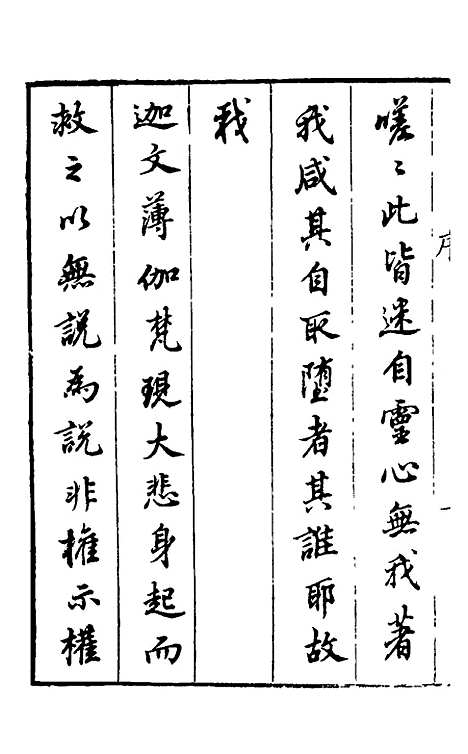 嗟〻此皆迷自靈心無我著
我咸其自取墮者其誰耶故
我
迦文薄伽梵現大悲身起而
救之以無說為說非權示權
序
一